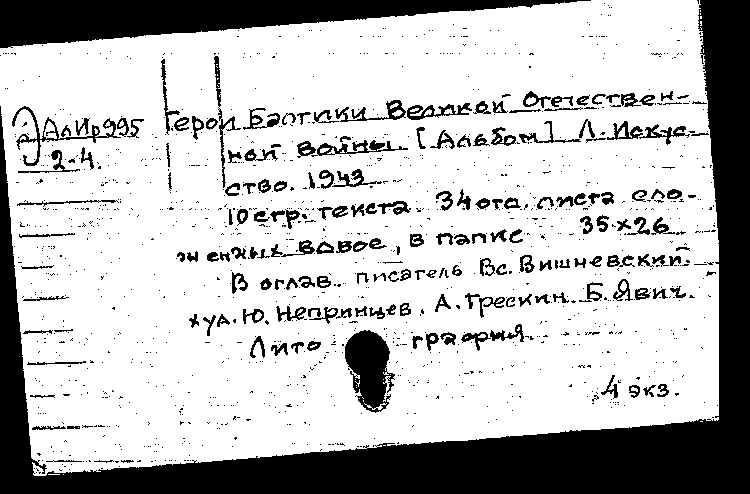 АлИр995 Герои Балтики Великой Отечествен-
2-4. ной войны. [Альбом] Л. Искус-
ство. 1943
10 стр. текста. 34 отд. листа сло-
женных вдвое, в папке 35×26
В оглав. писатель Вс. Вишневский.
худ. Ю. Непринцев. А. Трескин. Б. Явич.
Литография.
4 экз.